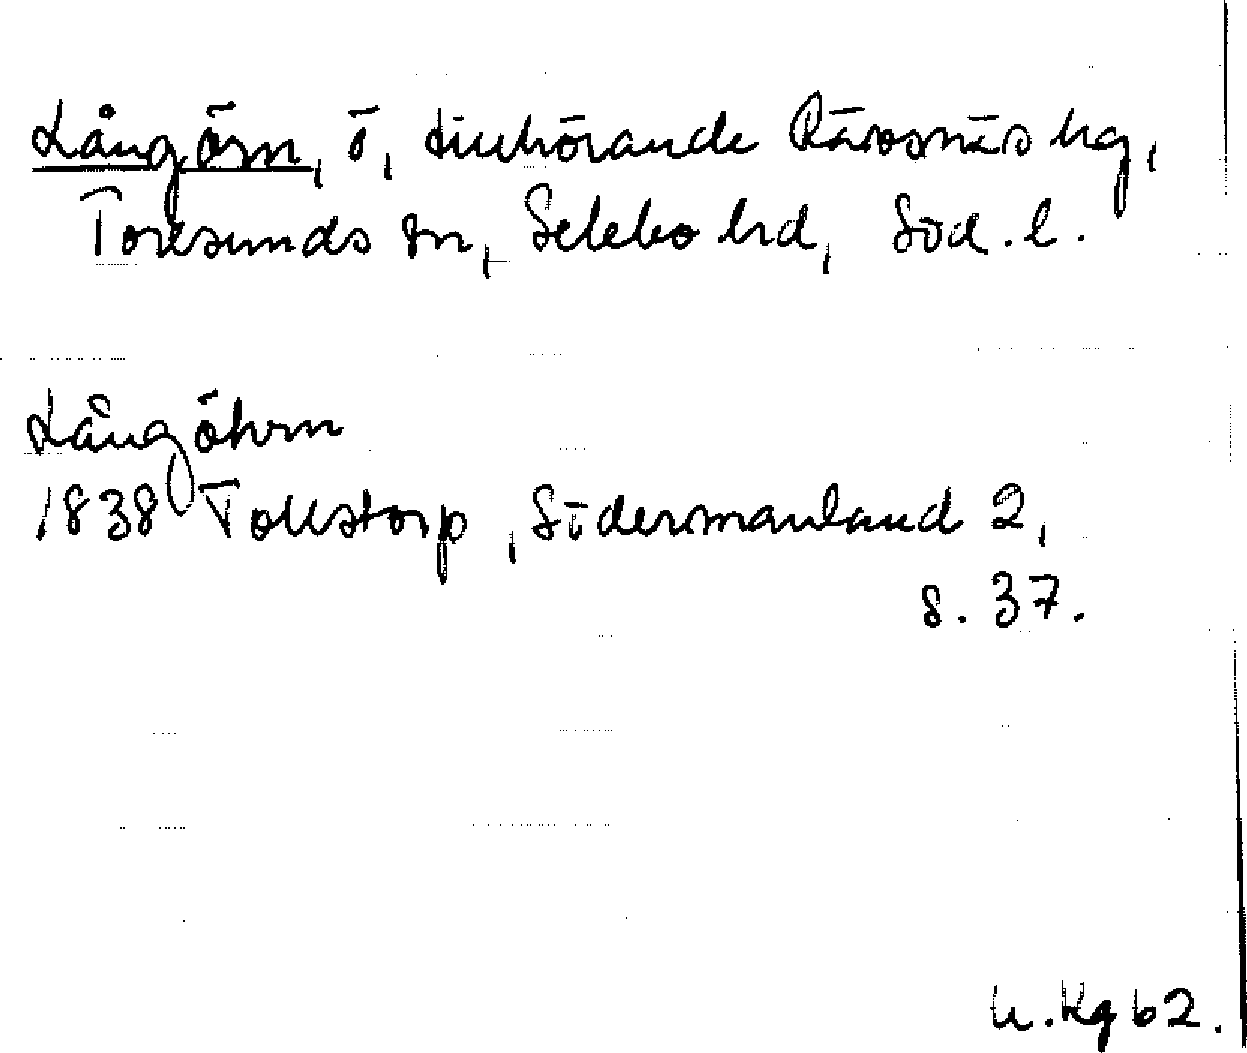 Långörn, ö, tillhörande Räfsnäs hg,
Toresunds sn, Selebo hd, Söd. l.
Långöhrn
1838 Tollstorp, Södermanland 2,
s. 37.
U. Kg 62.